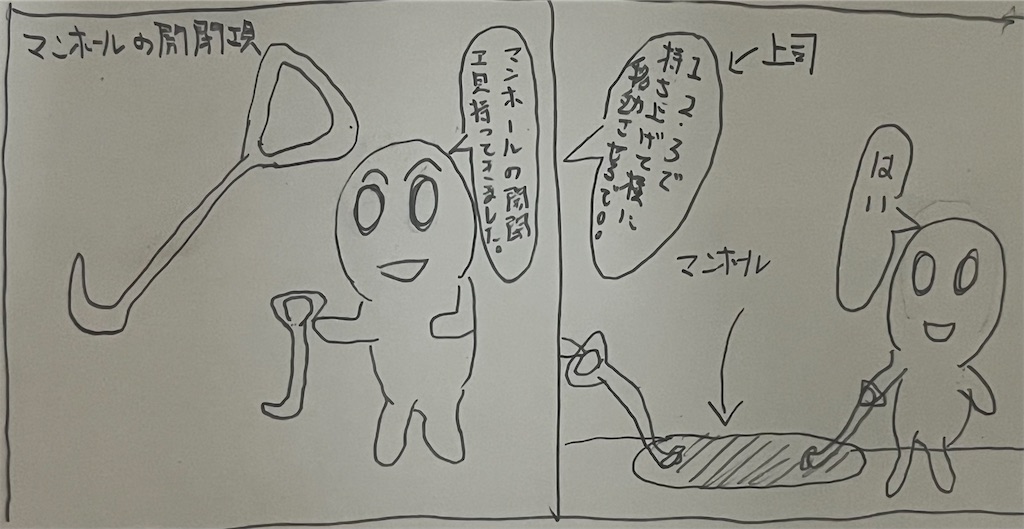 マンホールの開閉
マンホールの開閉
工具持ってきました。
上司
1.2.3で
持ち上げて横に
移動させるで!!
はい
マンホール